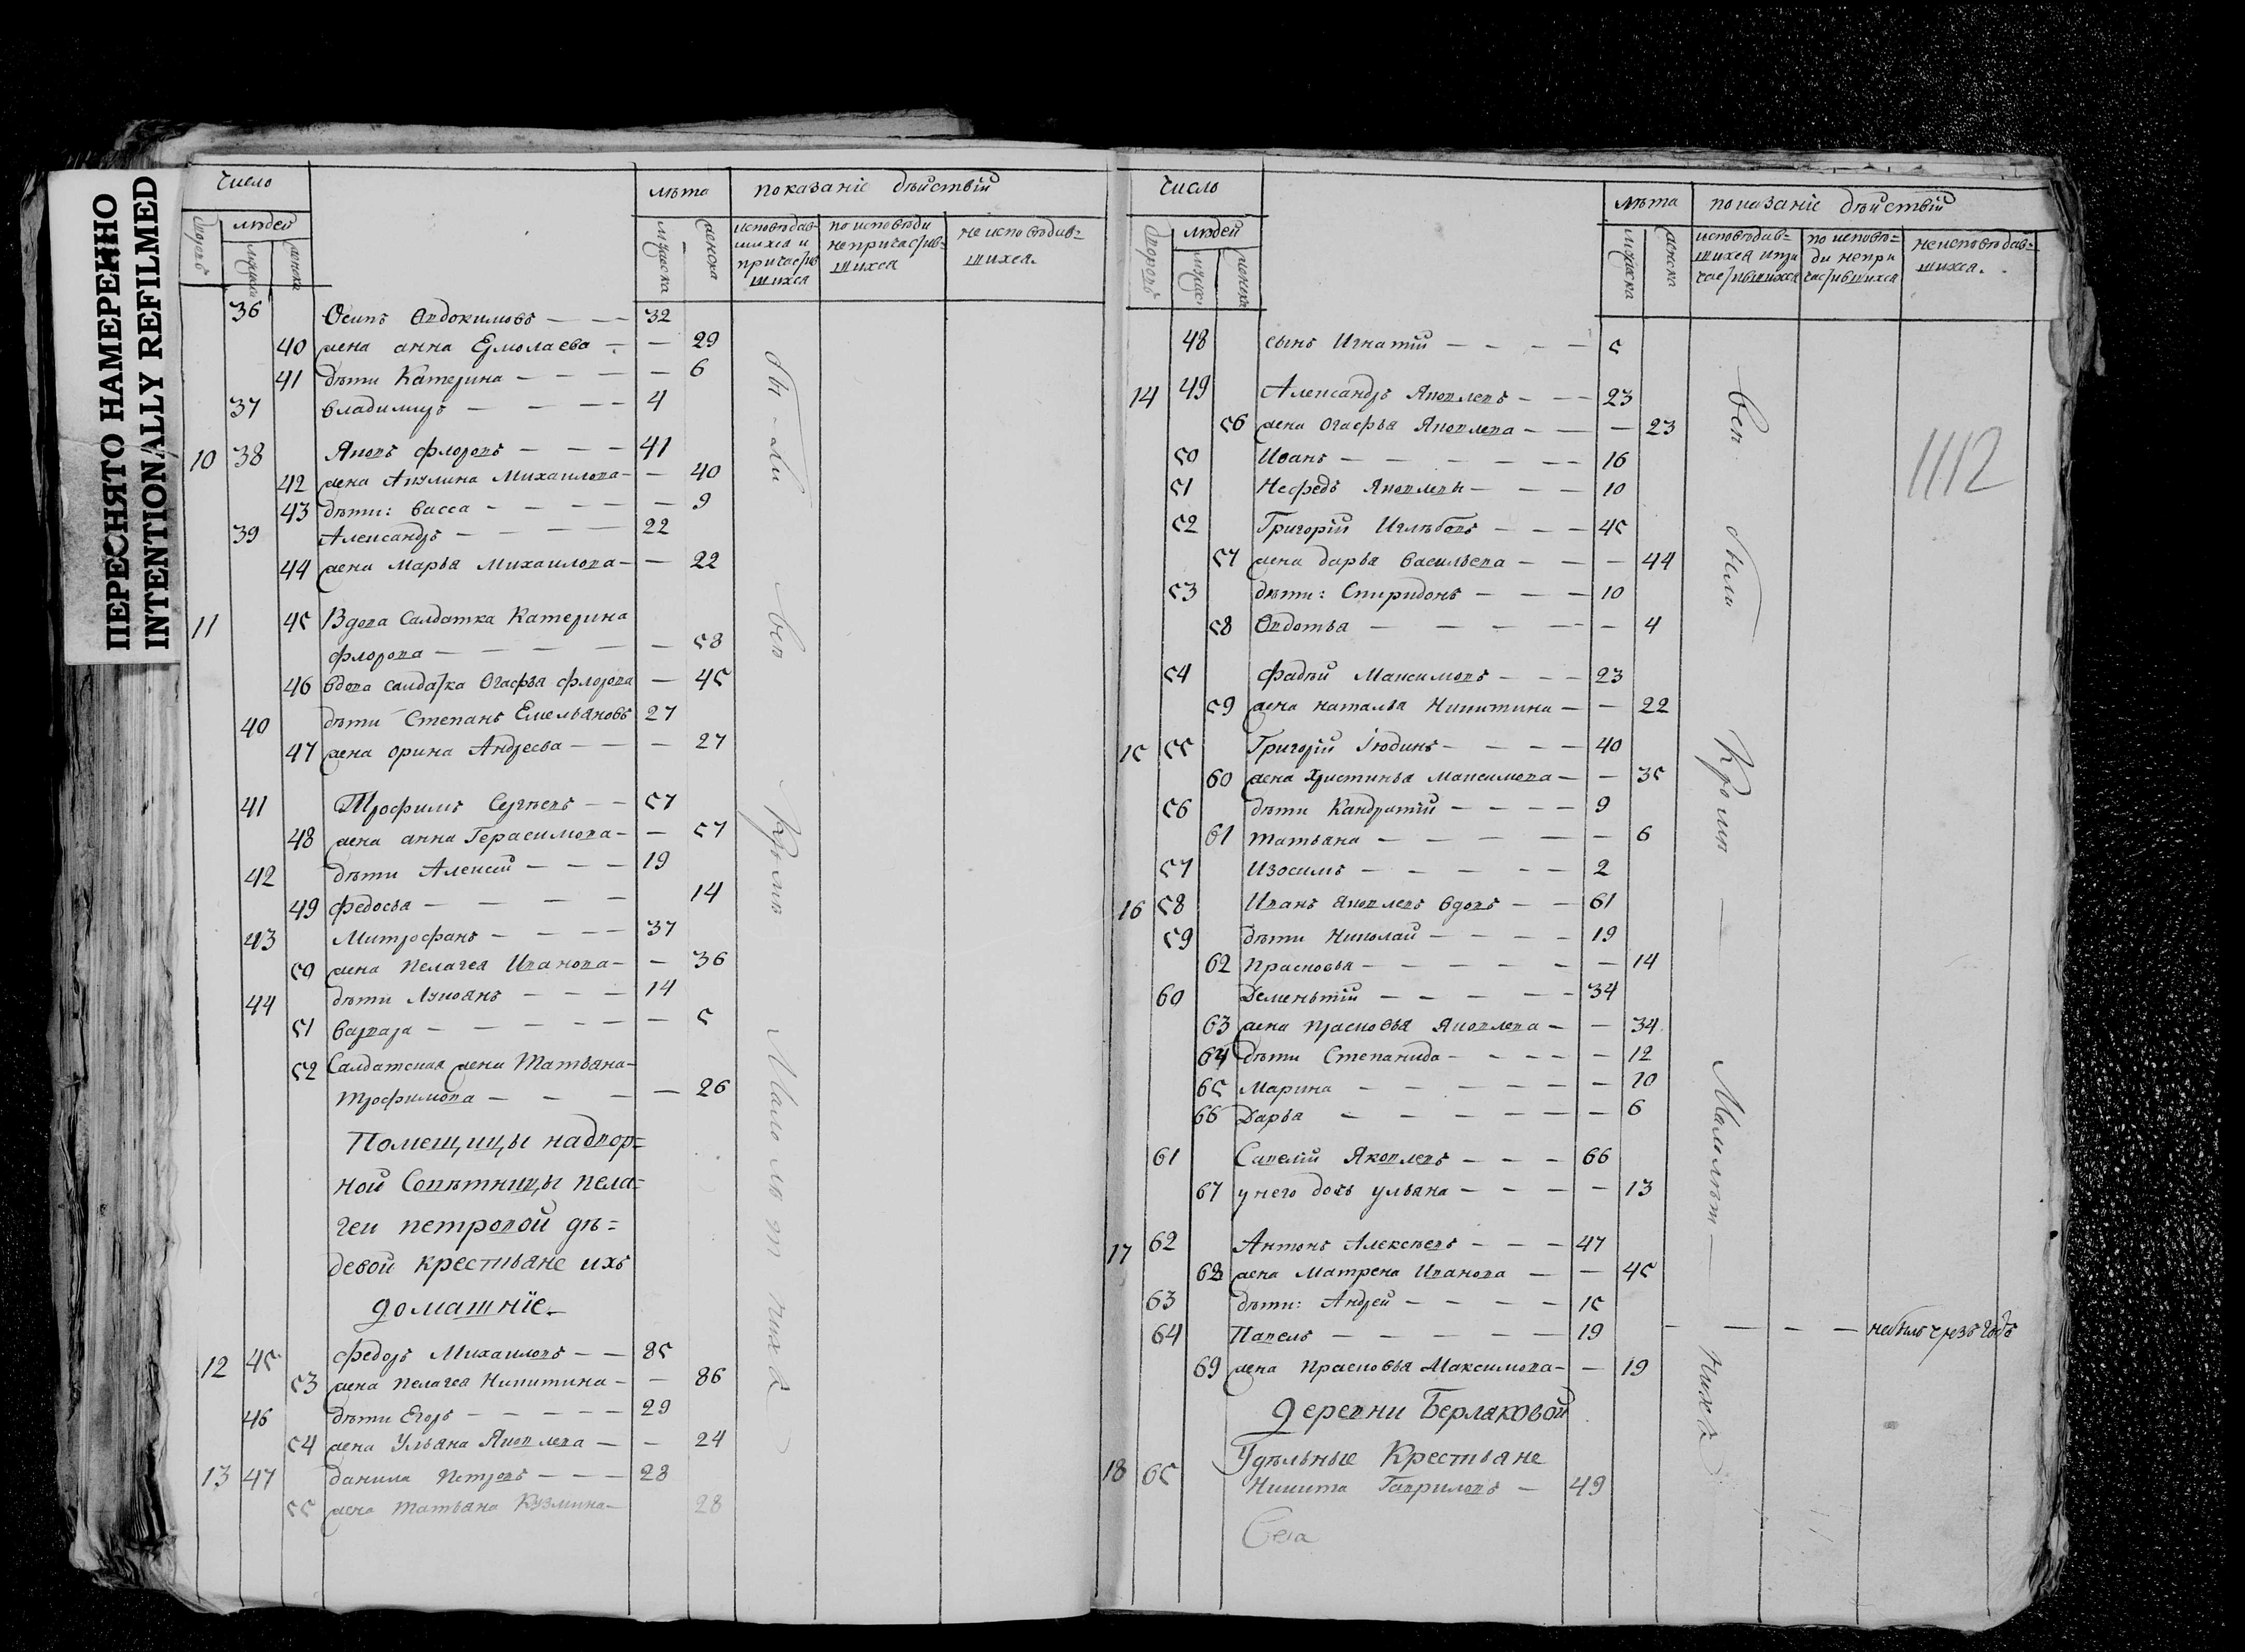 ПЕРЕСНЯТО НАМЕРЕННО
INTENTIONALLY REFILMED
Число
лѣта
показаніе дѣйствій
дворовъ
людей
мужеска
женска
мужеска
женска
исповѣдав=
шихся и
причастив
шихся
по исповѣди
непричастив=
шихся
не исповѣдав=
шихся.
36 Осипъ Овдокимовъ — — — 32
40 жена анна Ермолаева — — 29
41 дѣти Катерина — — — — 6
37 владимиръ — — — — 4
10 38 Яковъ флоровъ — — — 41
42 жена Акулина Михаилова — — 40
43 дѣти: васса — — — — — 9
39 Александръ — — — — 22
44 жена Марья Михаилова — — 22
11 45 Вдова Салдатка Катерина
флорова — — — — — 58
46 вдова салдатка Огафья флорова — 45
40 дѣти Степанъ Емельяновъ 27
47 жена орина Андреева — — — 27
41 Трофимъ Сергѣевъ — — 57
48 жена анна Герасимова — — 57
42 дѣти Алексѣй — — — 19
49 федосья — — — — 14
43 Митрофанъ — — — — 37
50 жена пелагея Иванова — — 36
44 дѣти Лукоянъ — — — 14
51 варвара — — — — — — 5
52 Салдатская жена Татьяна
трофимова — — — — 26
Помещицы надвор=
ной Совѣтницы пела=
геи петровой дѣ=
девой крестьяне ихъ
домашнїе
12 45 федоръ Михаиловъ — — 85
53 жена пелагея Никитина — — 86
46 дѣти Егоръ — — — — — 29
54 жена Ульяна Яковлева — — 24
13 47 данила Петровъ — — — 28
55 жена татьяна Кузмина — 28
бы - ли всѣ кромѣ Малолѣтнихъ
Число
лѣта
показаніе дѣйствій
дворовъ
людей
мужес
женска
мужеска
женска
исповѣдав=
шихся и при
частившихся
по исповѣ=
ди непри
частившихся
неисповѣдав=
шихся.
1112
48 сынъ Игнатій — — — — 5
14 49 Александръ Яковлевъ — — — 23
56 жена Огафья Яковлева — — — 23
50 Иванъ — — — — — — — 16
51 Нефедъ Яковлевы — — — 10
52 Григорій Иглѣбовъ — — — 45
57 жена дарья васильева — — — 44
53 дѣти: Спиридонъ — — — 10
58 Овдотья — — — — — — 4
54 фадѣй Максимовъ — — — 23
59 жена наталья Никитина — — 22
15 55 Григорій Июдинъ — — — — 40
60 жена христинья Максимова — — 35
56 дѣти Кандратій — — — — 9
61 татьяна — — — — — 6
57 Изосимъ — — — — — 2
16 58 Иванъ яковлевъ вдовъ — — 61
59 дѣти Николай — — — — 19
62 прасковья — — — — — — — 14
60 Дементій — — — — — 34
63 жена прасковья Яковлева — — 34
64 дѣти Степанида — — — — — 12
65 Марина — — — — — — 10
66 Дарья — — — — — — — 6
61 Савелій Яковлевъ — — — 66
67 у него дочь ульяна — — — — 13
17 62 Антонъ Алексѣевъ — — — 47
68 жена Матрена Иванова — — 45
63 дѣти: Андрей — — — — 15
64 Павелъ — — — — — — 19 — — — — небылъ чрезъ годъ
69 жена прасковья Максимова — — 19
деревни Берлаковой
Удѣльные Крестьяне
18 65 Никита Гавриловъ — 49
всѣ были Кромѣ — Малолѣт — нихъ